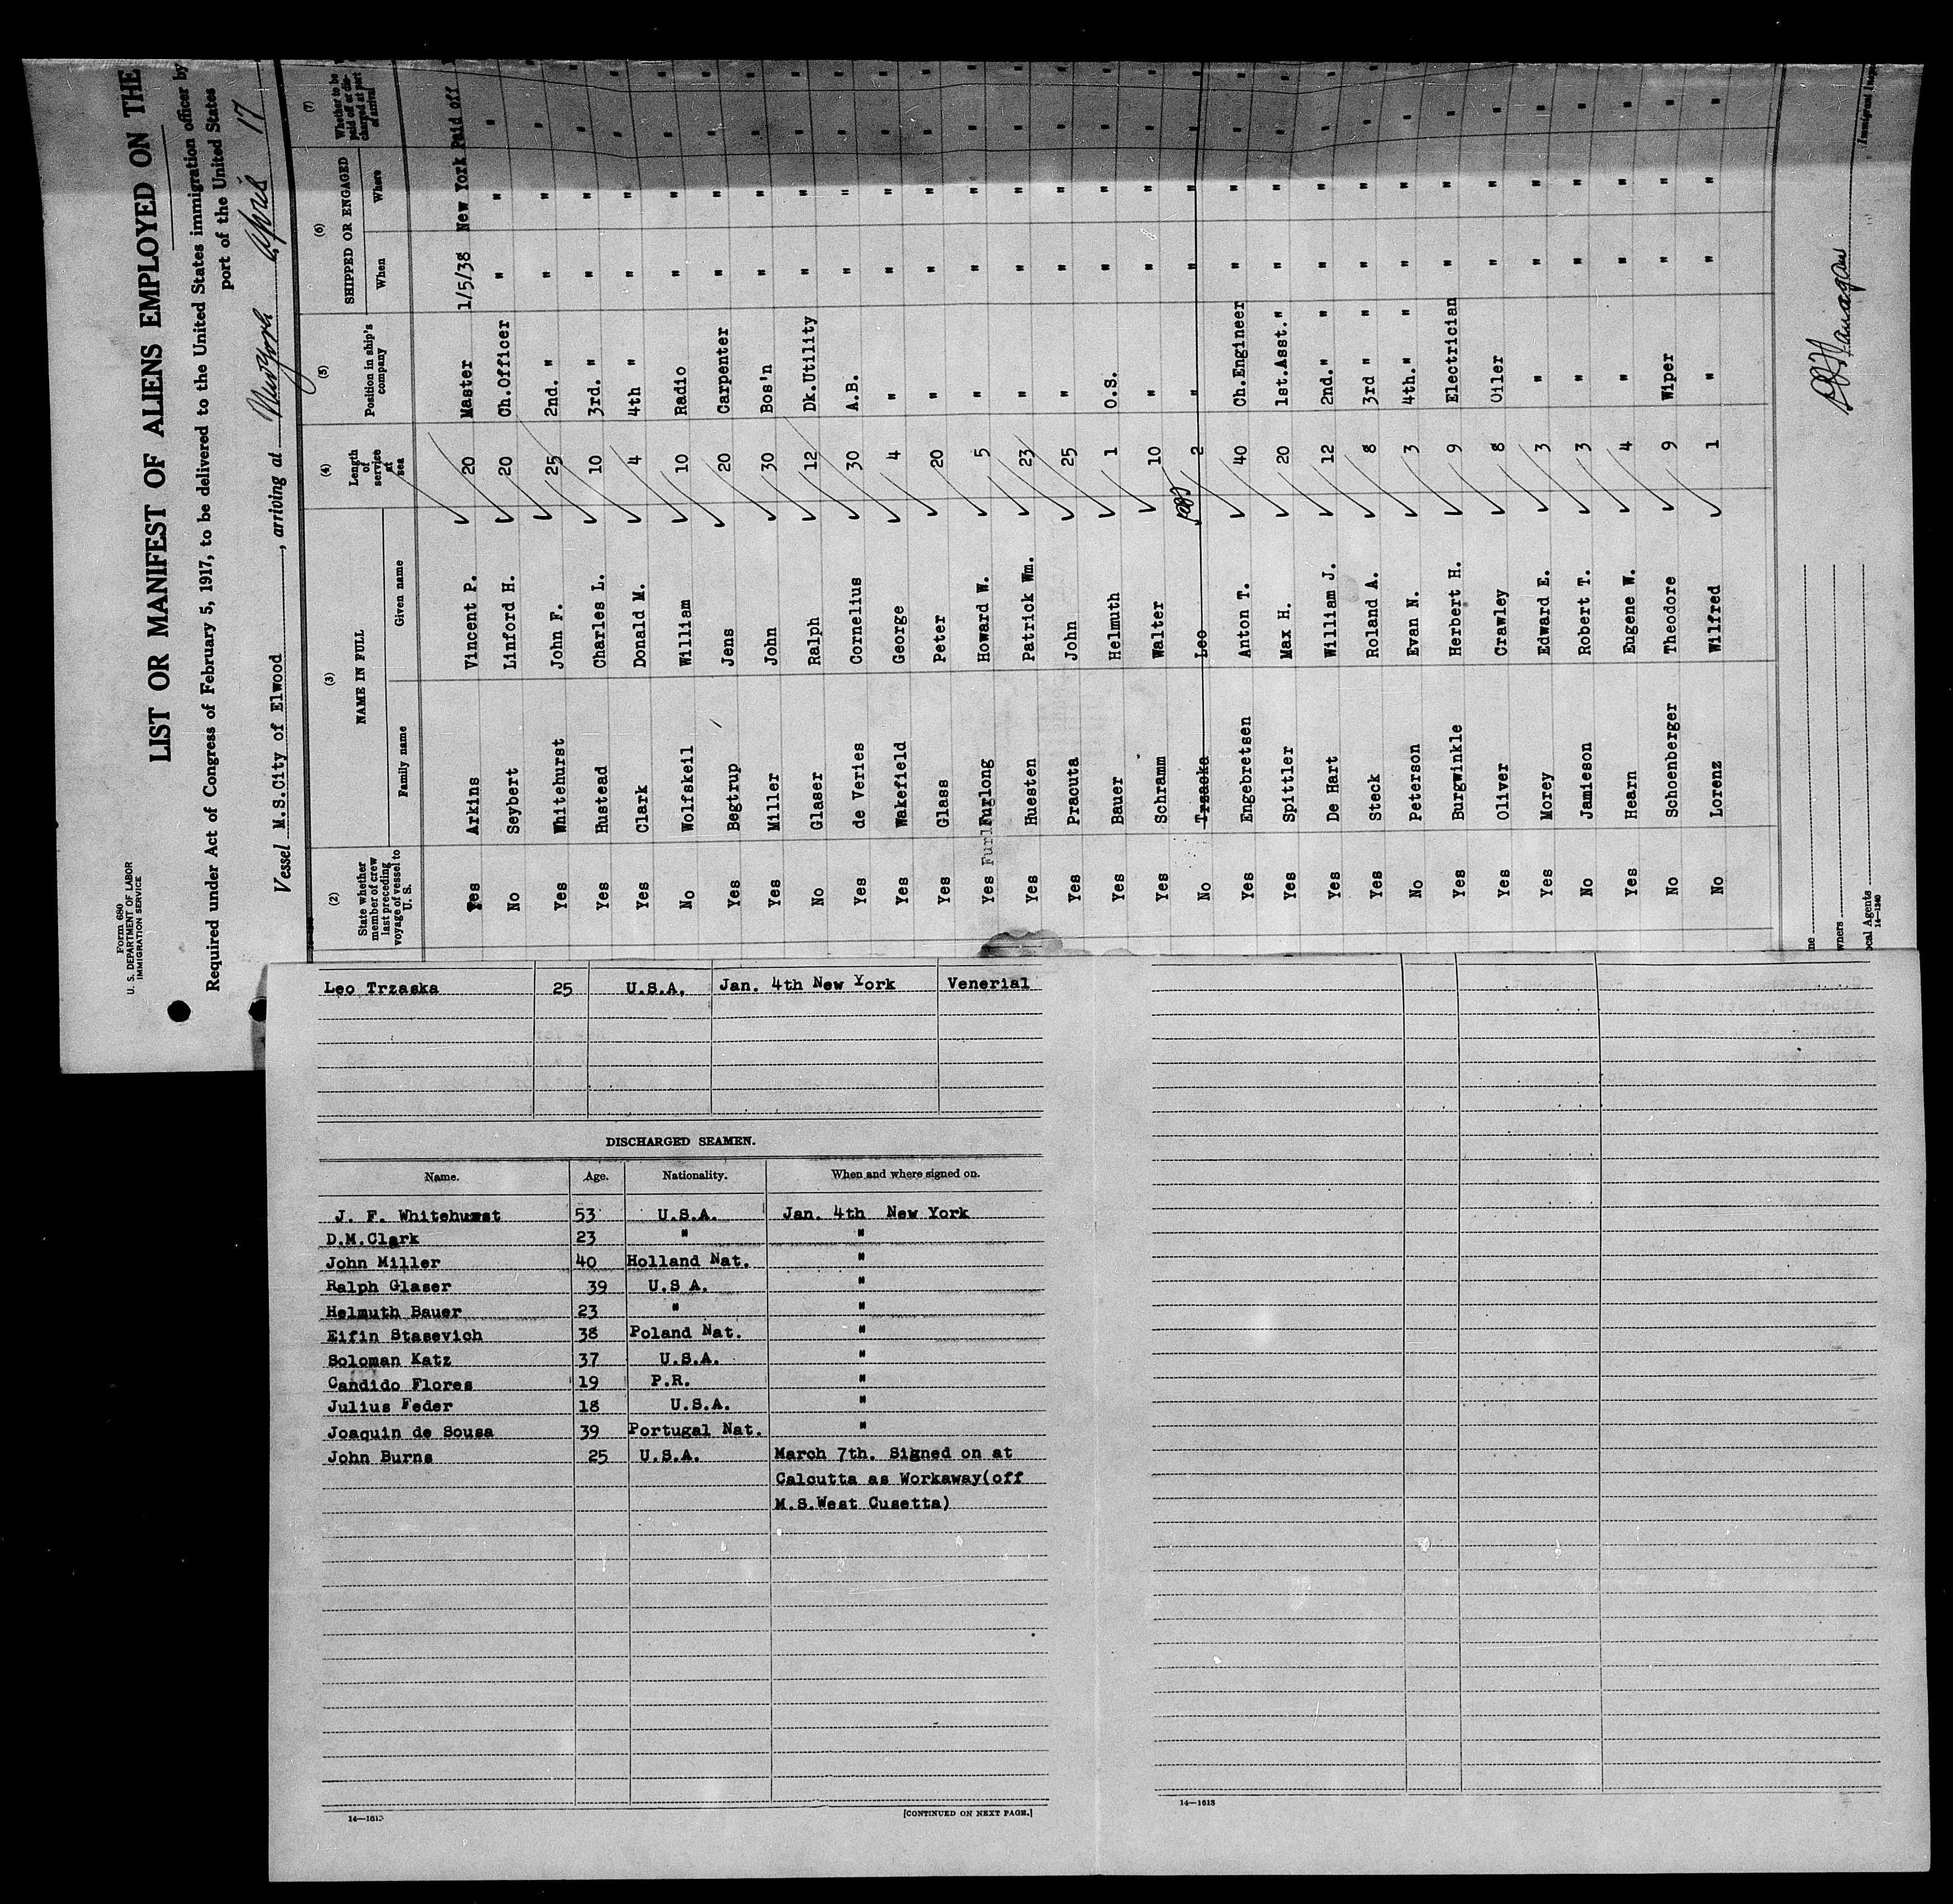 Form 680
U. S. DEPARTMENT OF LABOR
IMMIGRATION SERVICE
LIST OR MANIFEST OF ALIENS EMPLOYED ON THE
Required under Act of Congress of February 5, 1917, to be delivered to the United States immigration officer by
port of the United States
Vessel M.S.City of Elwood, arriving at New York April 17
(2) (3) (4) (5) (6) (7)
State whether member of crew last preceding voyage of vessel to U. S. NAME IN FULL Length of service at sea Position in ship's company SHIPPED OR ENGAGED Whether to be paid off or discharged at port of arrival
Family name Given name When Where
Yes Arkins Vincent P. 20 Master 1/5/38 New York Paid off
No Seybert Linford H. 20 Ch.Officer " " "
Yes Whitehurst John F. 25 2nd. " " " "
Yes Hustead Charles L. 10 3rd. " " " "
Yes Clark Donald M. 4 4th " " " "
No Wolfskeil William 10 Radio " " "
Yes Begtrup Jens 20 Carpenter " " "
Yes Miller John 30 Bos'n " " "
No Glaser Ralph 12 Dk.Utility " " "
Yes de Veries Cornelius 30 A.B. " " "
Yes Wakefield George 4 " " " "
Yes Glass Peter 20 " " " "
Yes Furlong Howard W. 5 " " " "
Yes Huesten Patrick Wm. 23 " " " "
Yes Pracuta John 25 " " " "
Yes Bauer Helmuth 1 O.S. " " "
Yes Schramm Walter 10 " " " "
No Trzaska Leo 2 " " " "
Yes Engebretsen Anton T. 40 Ch.Engineer " " "
Yes Spittler Max H. 20 1st.Asst." " " "
Yes De Hart William J. 12 2nd." " " " "
Yes Steck Roland A. 8 3rd " " " " "
No Peterson Evan N. 3 4th." " " " "
Yes Burgwinkle Herbert H. 9 Electrician " " "
Yes Oliver Crawley 8 Oiler " " "
Yes Morey Edward E. 3 " " " "
No Jamieson Robert T. 3 " " " "
Yes Hearn Eugene W. 4 " " " "
No Schoenberger Theodore 9 Wiper " " "
No Lorenz Wilfred 1 " " " "
Immigrant Inspe
me
wners
ocal Agents
14—1240
Leo Trzaska 25 U.S.A. Jan. 4th New York Venerial
DISCHARGED SEAMEN.
Name. Age. Nationality. When and where signed on.
J. F. Whitehurst 53 U.S.A. Jan. 4th New York
D.M.Clark 23 " "
John Miller 40 Holland Nat. "
Ralph Glaser 39 U.S A. "
Helmuth Bauer 23 " "
Eifin Stasevich 38 Poland Nat. "
Soloman Katz 37 U.S.A. "
Candido Flores 19 P.R. "
Julius Feder 18 U.S.A. "
Joaquin de Sousa 39 Portugal Nat. "
John Burns 25 U.S.A. March 7th. Signed on at
Calcutta as Workaway(off
M.S.West Cusetta)
14—1613
[CONTINUED ON NEXT PAGE.]
14—1613